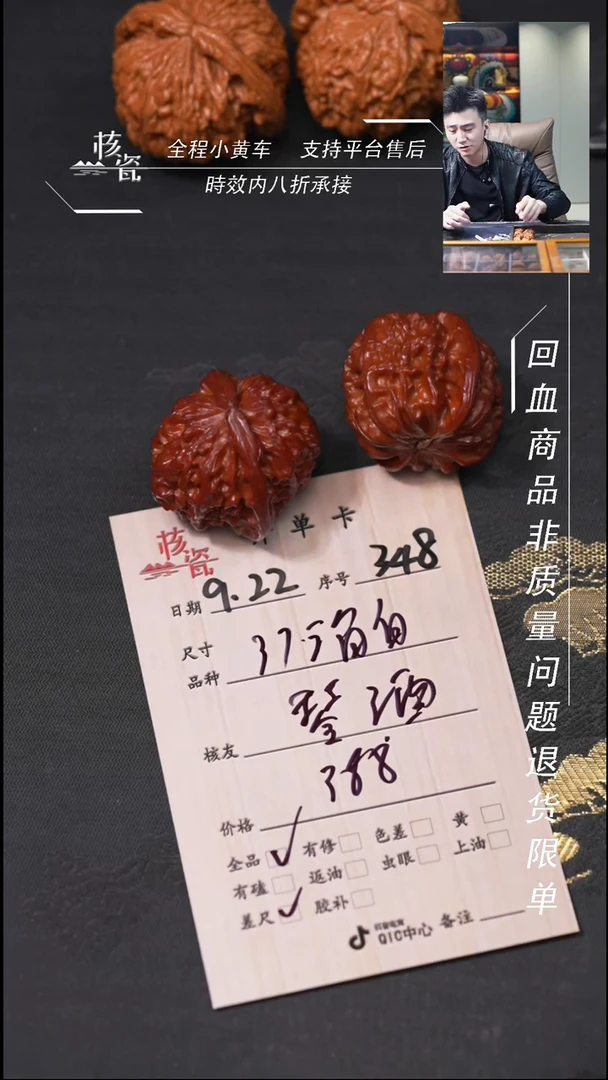 核瓷
全程小黄车 支持平台售后
時效内八折承接
回血商品非质量问题退货限单
核瓷
单卡
日期 9.22 序号 348
尺寸 37
品种
核友
388
价格
全品 有修 色差 黄
有磕 返油 虫眼 上油
差尺 胶补
QIC中心 备注